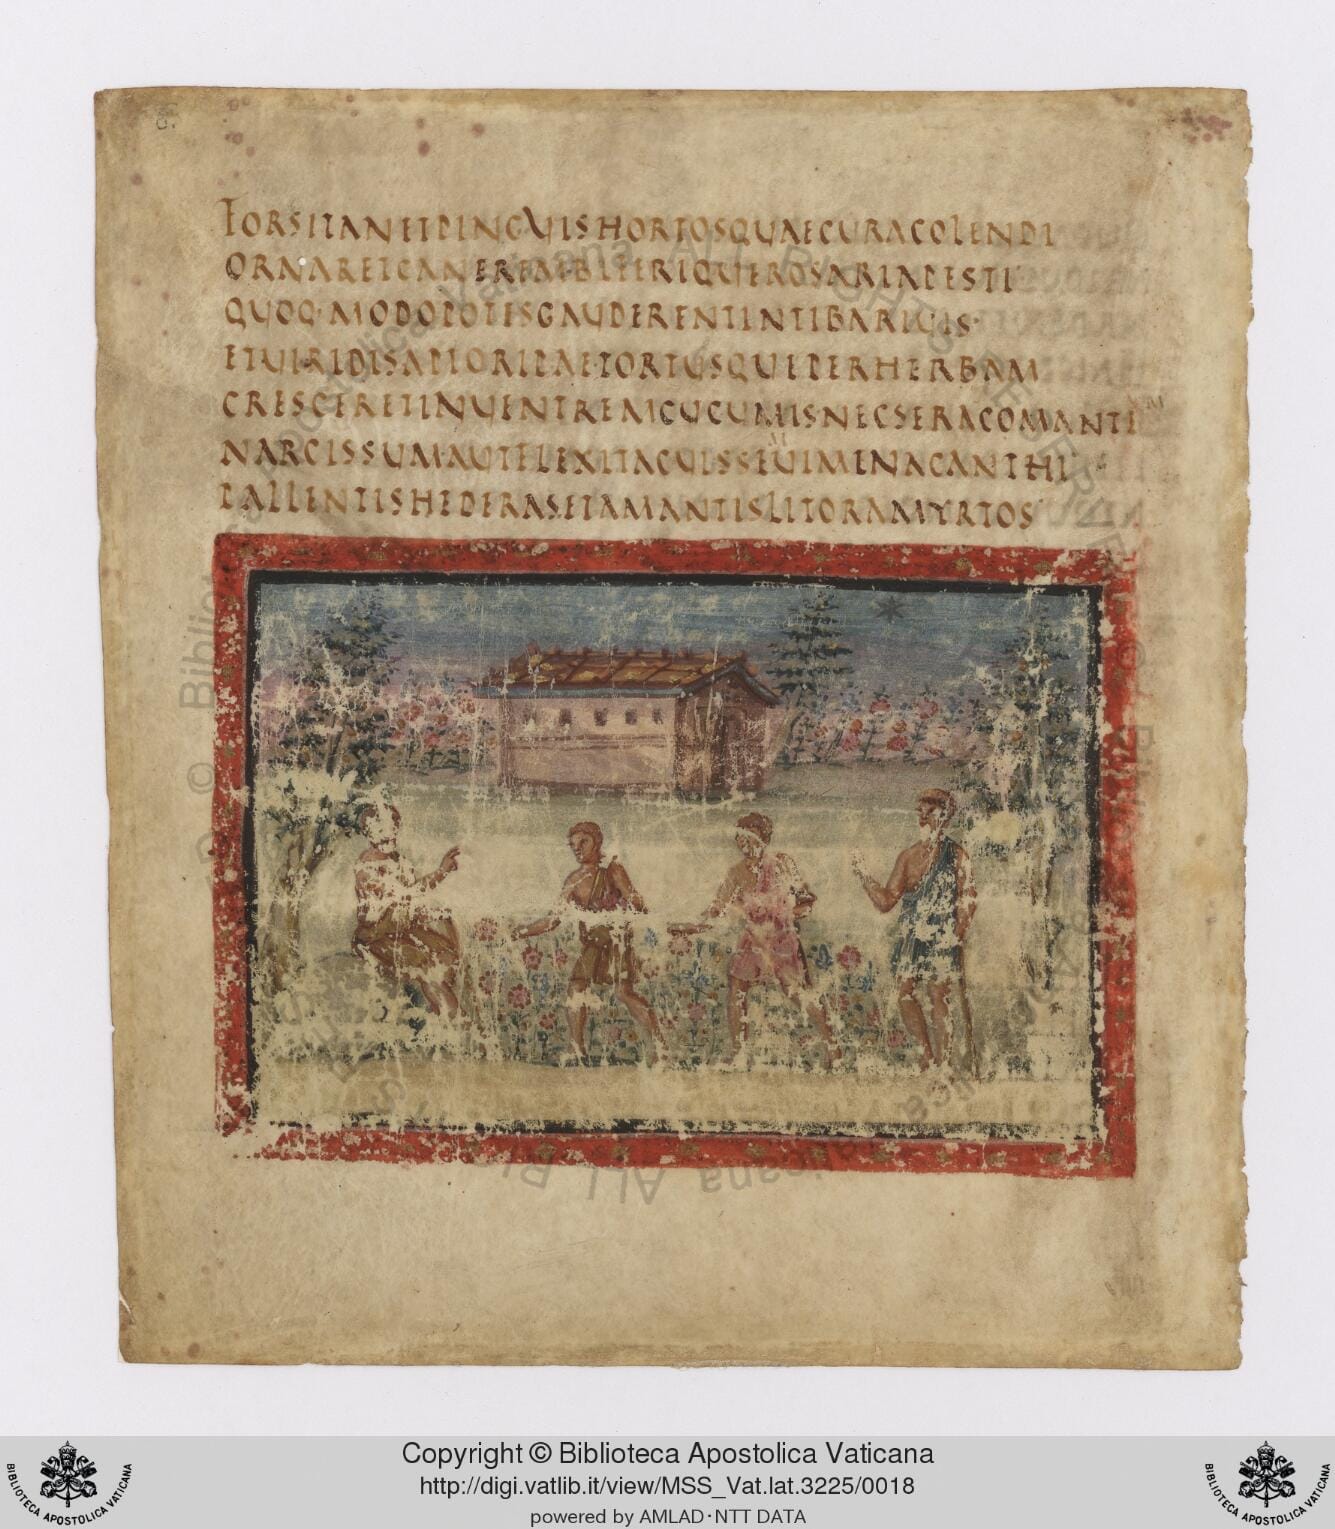 6.
FORSITANETPINGVISHORTOSQVAECVRACOLENDI
ORNARETCANEREMBIFERIQVEROSARIAPESTI
QVOQ·MODOPOTISGAVDERENTINTIBARIVIS·
ETVIRIDISAPIORIPAETORTVSQVEPERHERBAM
CRESCERETINVENTREMCVCVMISNECSERACOMANTEM
NARCISSVMAVTFLEXITACVISSEMVIMENACANTHI
PALLENTISHEDERASETAMANTISLITORAMYRTOS
Copyright © Biblioteca Apostolica Vaticana
http://digi.vatlib.it/view/MSS_Vat.lat.3225/0018
powered by AMLAD·NTT DATA
BIBLIOTECA APOSTOLICA VATICANA
BIBLIOTECA APOSTOLICA VATICANA